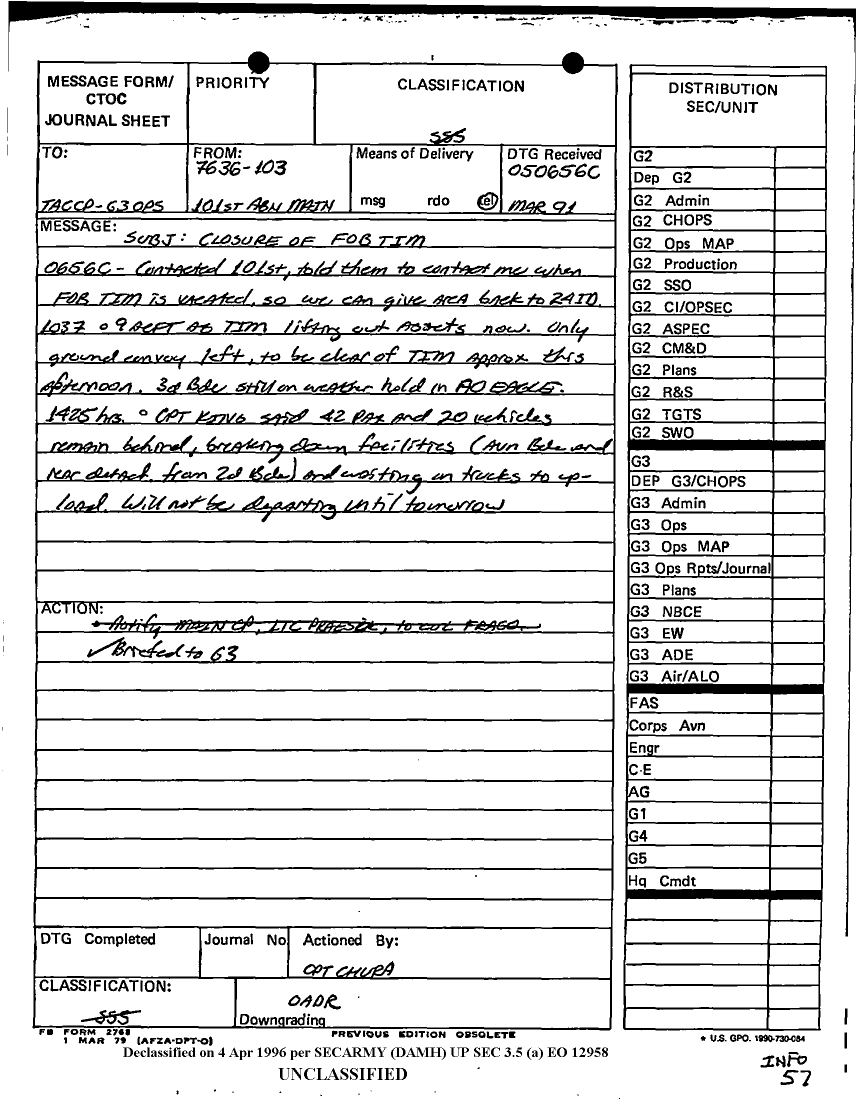 MESSAGE FORM/
CTOC
JOURNAL SHEET
PRIORITY
CLASSIFICATION
SSS
TO:
TACCP-G3 OPS
FROM:
7636-103
101ST ABN MAIN
Means of Delivery
msg rdo tel
DTG Received
050656C
MAR 91
MESSAGE:
SUBJ: CLOSURE OF FOB TIM
0656C - Contacted 101st, told them to contact me when
FOB TIM is vacated, so we can give area back to 24ID.
1037 ° 9 ACFT at TIM lifting out assets now. Only
ground convoy left, to be clear of TIM approx this
afternoon. 3d Bde still on weather hold in AO EAGLE.
1425 hrs. ° CPT KING said 42 PAX and 20 vehicles
remain behind, breaking down facilities (Avn Bde and
rear detach. from 2d Bde) and waiting on trucks to up-
load. Will not be departing until tomorrow
ACTION:
• Notify MAIN CP, LTC to cut FRAGO.
✓ Briefed to G3
DTG Completed
Journal No
Actioned By:
CPT CHURA
CLASSIFICATION:
SSS
OADR
Downgrading
FB FORM 2768
1 MAR 79 (AFZA-DPT-O)
PREVIOUS EDITION OBSOLETE
DISTRIBUTION
SEC/UNIT
G2
Dep G2
G2 Admin
G2 CHOPS
G2 Ops MAP
G2 Production
G2 SSO
G2 CI/OPSEC
G2 ASPEC
G2 CM&D
G2 Plans
G2 R&S
G2 TGTS
G2 SWO
G3
DEP G3/CHOPS
G3 Admin
G3 Ops
G3 Ops MAP
G3 Ops Rpts/Journal
G3 Plans
G3 NBCE
G3 EW
G3 ADE
G3 Air/ALO
FAS
Corps Avn
Engr
C-E
AG
G1
G4
G5
Hq Cmdt
* U.S. GPO. 1990-730-084
Declassified on 4 Apr 1996 per SECARMY (DAMH) UP SEC 3.5 (a) EO 12958
UNCLASSIFIED
INFO
57